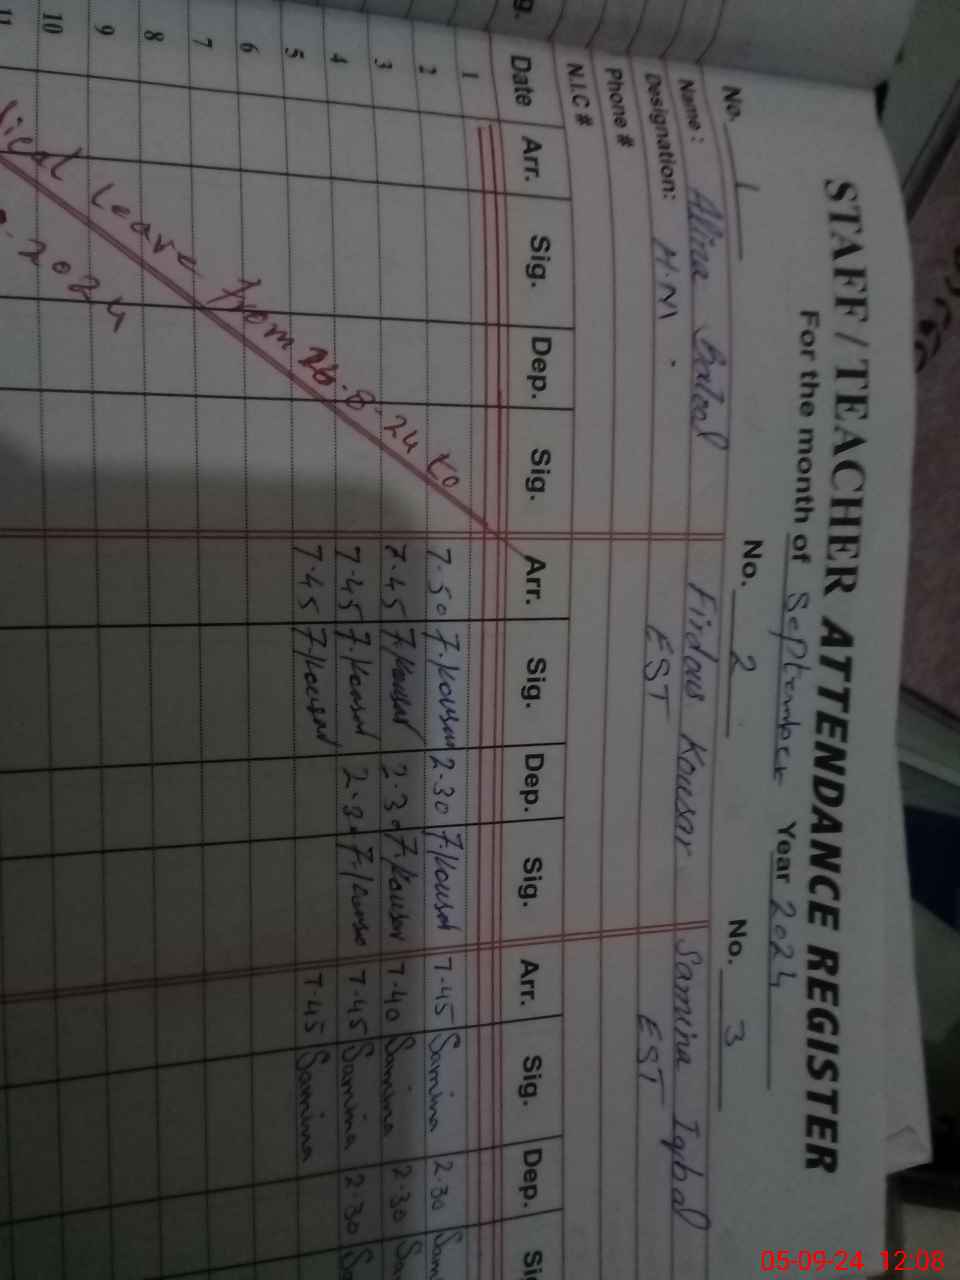 STAFF / TEACHER ATTENDANCE REGISTER
For the month of September Year 2024
No. 1 No. 2 No. 3
Name: Alina Batool Firdous Kousar Samina Iqbal
Designation: H.M EST EST
Phone #
N.I.C #
Date Arr. Sig. Dep. Sig. Arr. Sig. Dep. Sig. Arr. Sig. Dep.
1
2 7.50 F.Kousar 2.30 F.Kousar 7.45 Samina 2.30 Sam
3 7.45 F.Kousar 2.30 F.Kousar 7.40 Samina 2.30
4 7.45 F.Kousar 2.30 7.45 Samina 2.30
5 7.45 F.Kousar 7.45 Samina
6
7
8
9
10
11
Leave from 26.8.24 to
2024
05-09-24 12:08